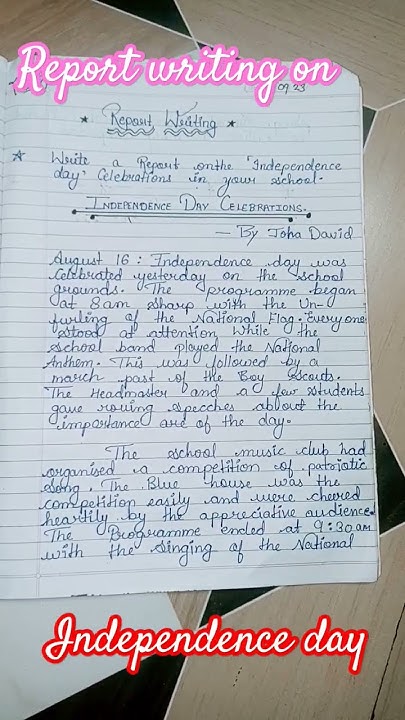 Report writing on
09.23
Report Writing
Write a Report onthe 'Independence
day' Celebrations in your school.
INDEPENDENCE DAY CELEBRATIONS.
- By Joha David
August 16 : Independence day was
celebrated yesterday on the school
grounds. The programme began
at 8am sharp with the Un-
furling of the National Flag. Everyone
stood at attention while the
school band played the National
Anthem. This was followed by a
march past of the Boy Scouts.
The Headmaster and a few students
gave rouing specches about the
importance are of the day.
The school music club had
organised a competition of patriotic
song. The Blue house was the
competition easily and were cheered
heartily by the appreciative audience.
The Programme ended at 9:30am
with the singing of the National
Independence day